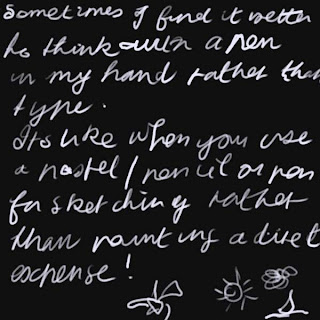 Sometimes I find it better
to think with a pen
in my hand rather than
type.
Its like when you use
a pastel / pencil or pen
for sketching rather
than painting a direct
expense!